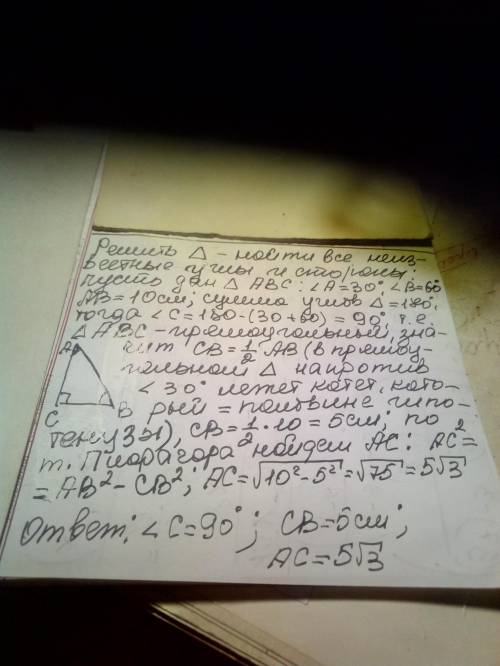 Решить Δ - найти все неиз-
вестные углы и стороны.
пусть дан Δ ABC: ∠A=30°, ∠B=60°
AB=10см; сумма углов Δ=180°,
тогда ∠C=180-(30+60)=90°, т.е.
Δ ABC - прямоугольный, зна-
чит CB=1/2 AB (в прямоу-
гольном Δ напротив
∠30° лежит катет, кото-
рый = половине гипо-
тенузы), CB=1/2·10=5см; по
т. Пифагора найдем AC: AC²=
=AB²-CB²; AC=√10²-5²=√75=5√3
Ответ: ∠C=90°; CB=5см;
AC=5√3
A
C
B